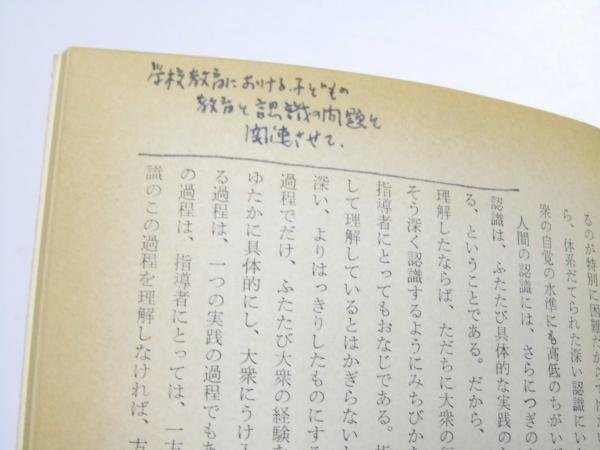 学校教育における、子どもの
教育と認識の問題と
関連させて.
るのが特別に困難だから
ら、体系だてられた深い認識にい
衆の自覚の水準にも高低のちがい
人間の認識には、さらにつぎの
認識は、ふたたび具体的な実践の
る、ということである。だから、
理解したならば、ただちに大衆の
そう深く認識するようにみちびか
指導者にとってもおなじである。指
して理解しているとはかぎらない
深い、よりはっきりしたものにす
過程でだけ、ふたたび大衆の経験な
ゆたかに具体的にし、大衆にうけ入
る過程は、一つの実践の過程でもあ
の過程は、指導者にとっては、一方
識のこの過程を理解しなければ、方